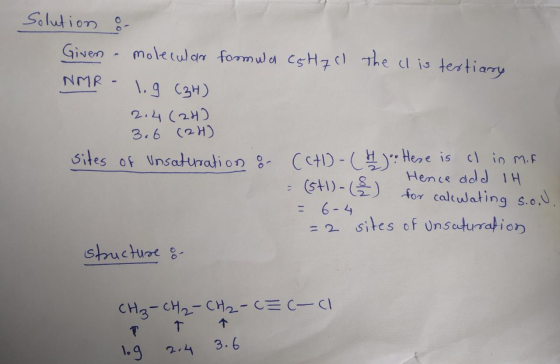 Solution :-
Given - molecular formula C5H7Cl The Cl is tertiary
NMR - 1.9 (3H)
2.4 (2H)
3.6 (2H)
Sites of Unsaturation :- (C+1) - (H/2) ∵ Here is Cl in M.F
= (5+1) - (8/2) Hence add 1H
= 6-4 for calculating S.O.U.
= 2 sites of Unsaturation
Structure :-
CH3-CH2-CH2-C≡C-Cl
↑ ↑ ↑
1.9 2.4 3.6